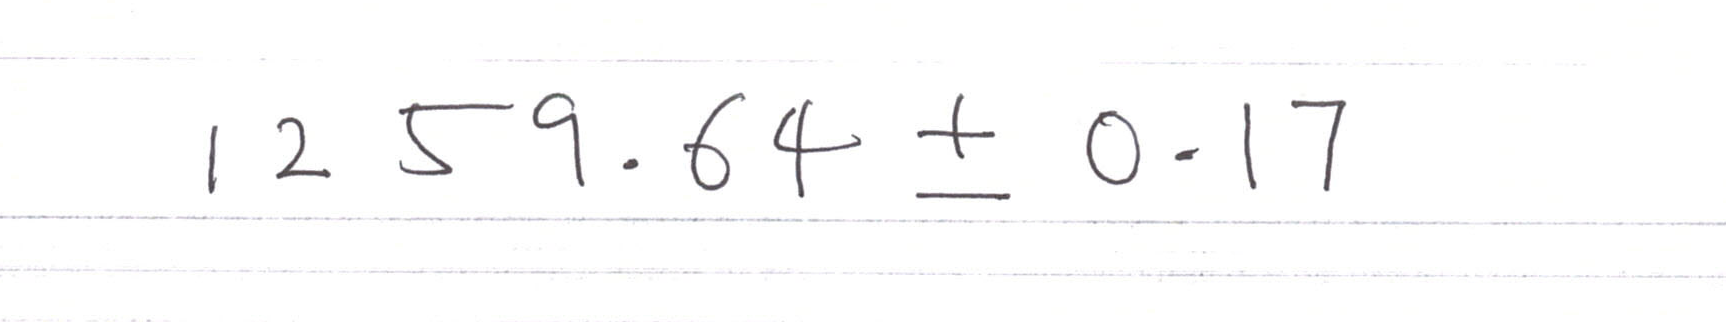 1259.64 ± 0.17